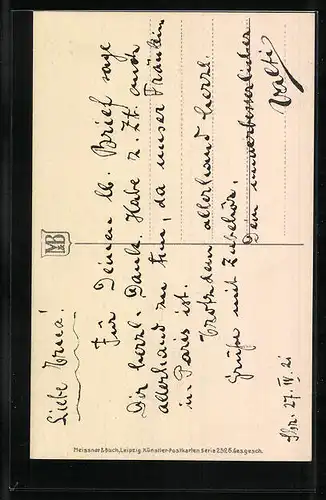 Liebe Erna!
Für Deinen lb. Brief sage
Dir herzl. Dank. Habe z. Zt. auch
allerhand zu tun, da unser Fräulein
in Paris ist.
Trotzdem allerhand herzl.
Grüße mit Zubehör,
Dein unverbesserlicher
Valti
27. IV. 21
M&B
Meissner & Buch, Leipzig. Künstler-Postkarten Serie 2326. Ges. gesch.